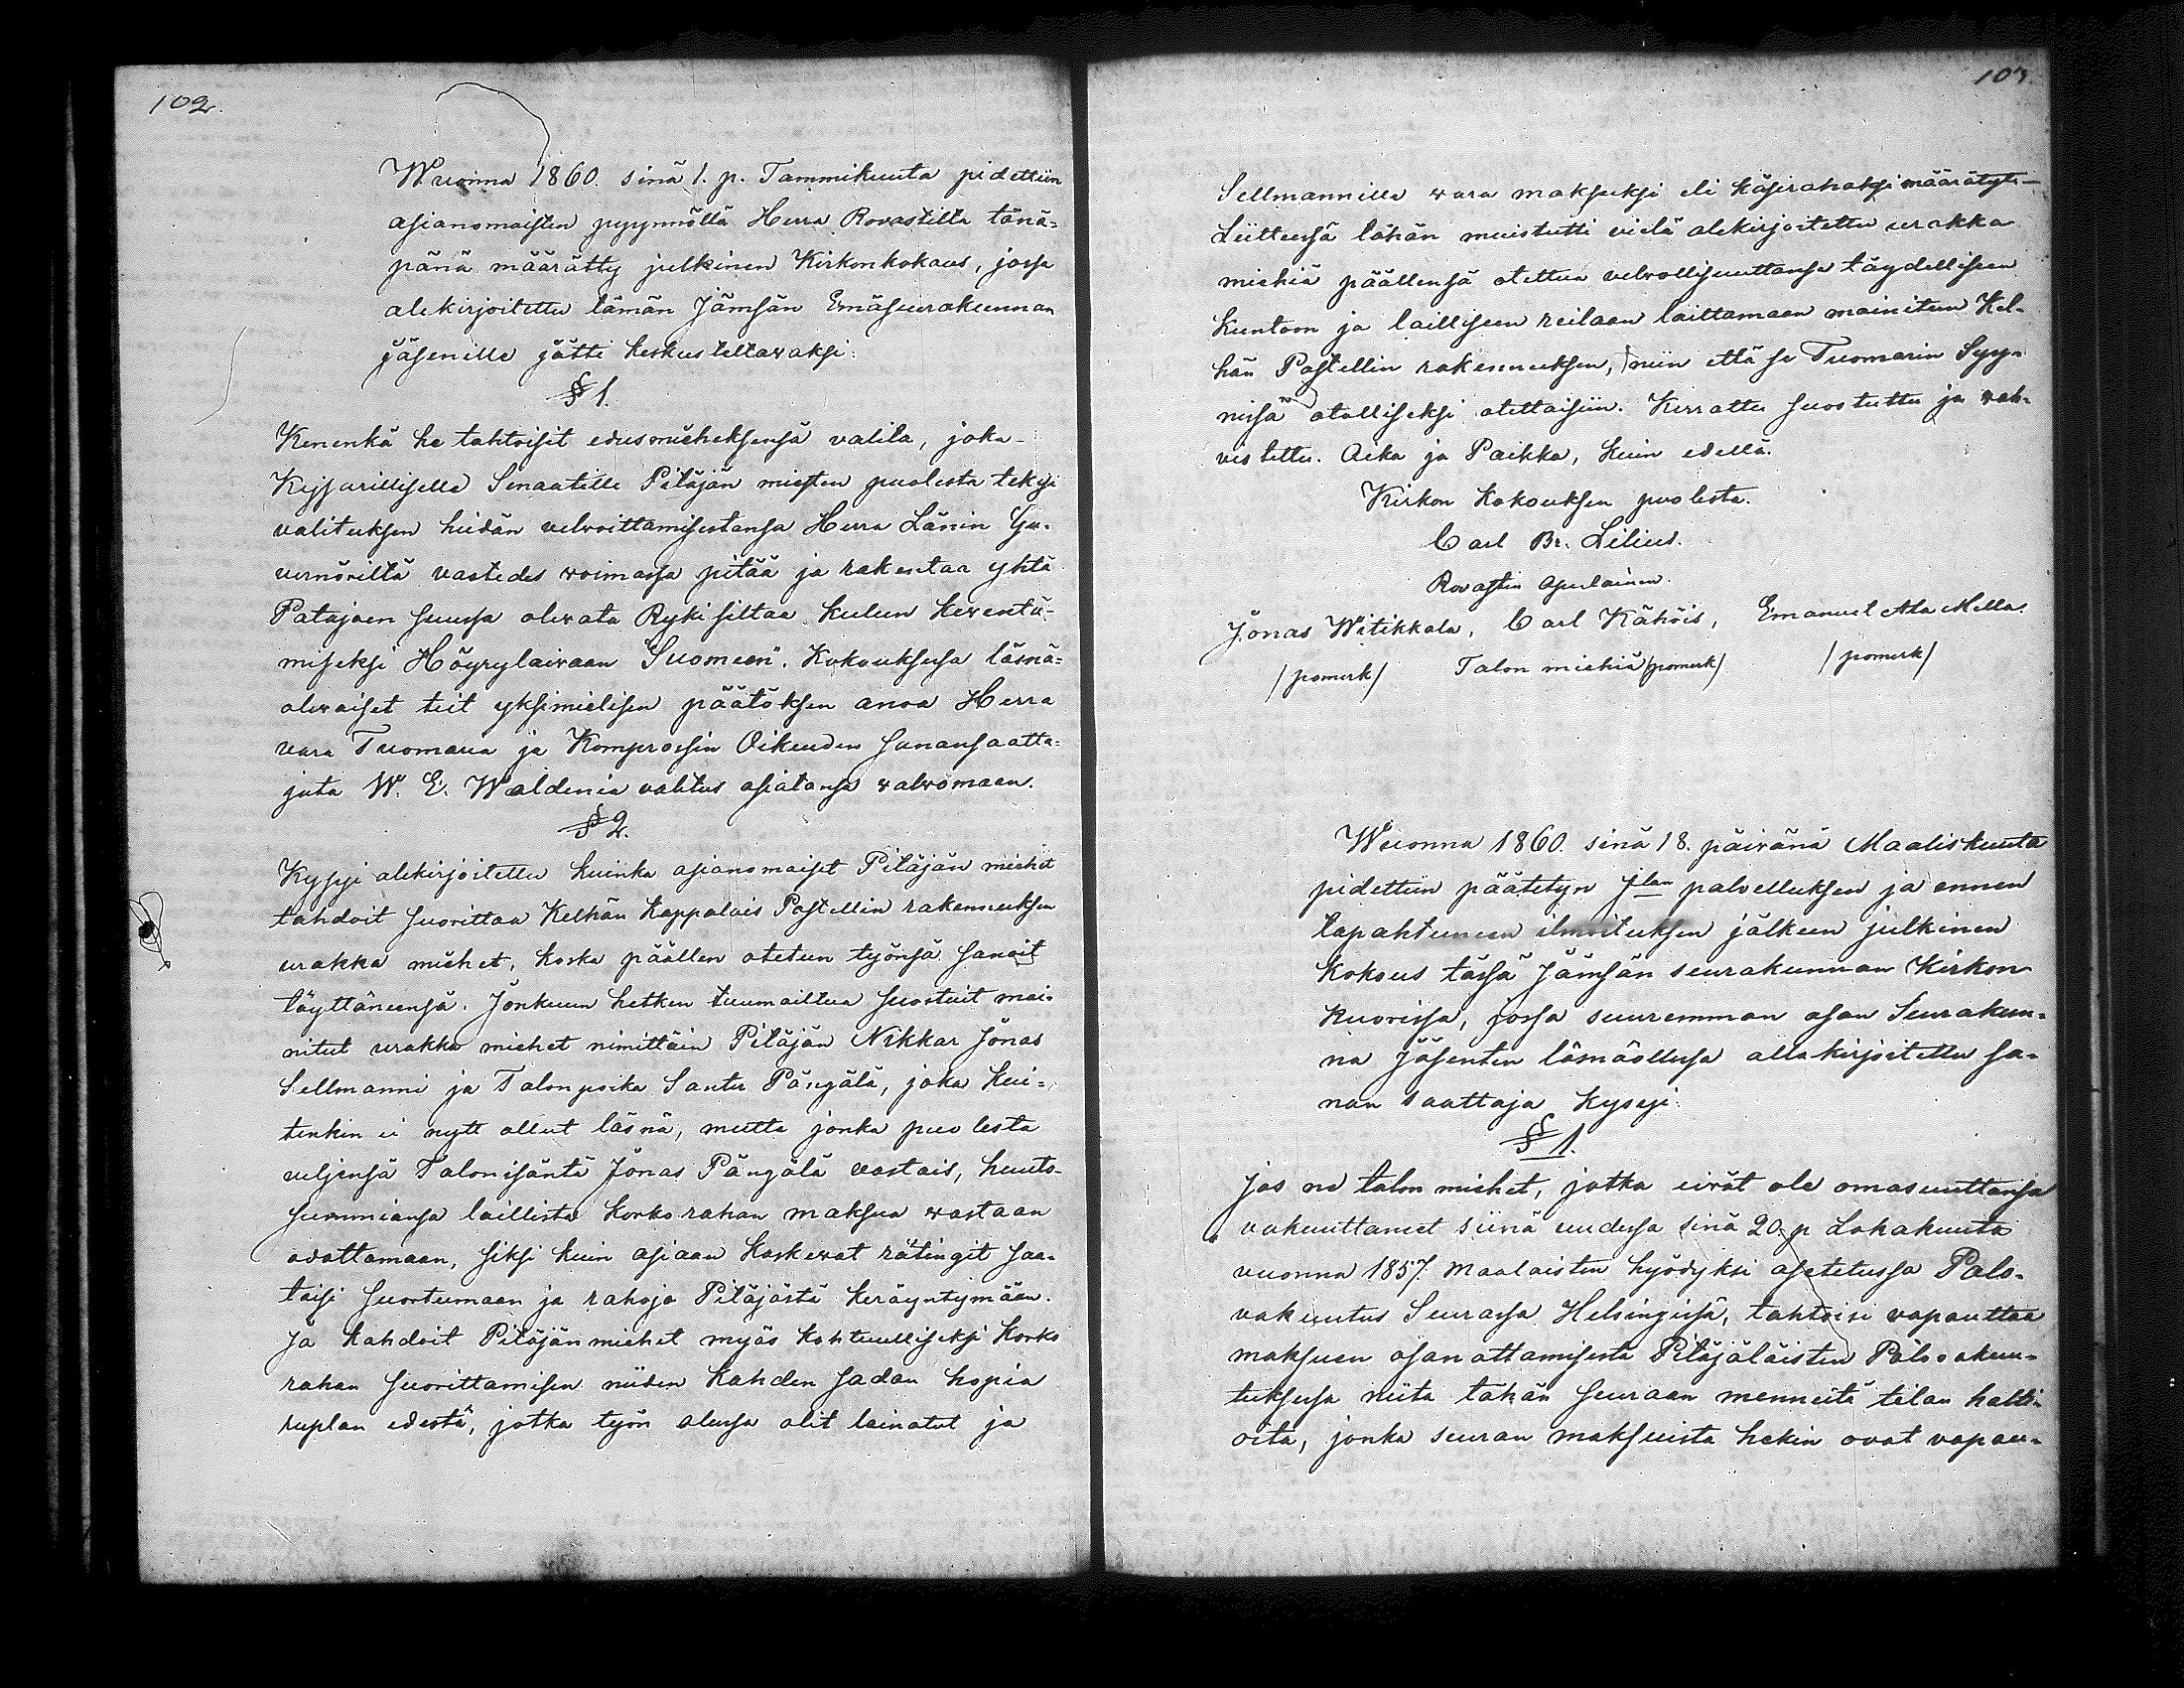 102.
Wuonna 1860. sinä 1. p. Tammikuuta pidettiin
asianomaisten pyynnöllä Herra Rovastilta tänä-
pänä määrätty julkinen Kirkonkokous, jossa
alekirjoitettu tämän Jämsän Emäseurakunnan
jäsenille jätti keskusteltavaksi:
§ 1.
Kenenkä he tahtoisit edusmieheksensä valita, joka
Kejsarilliselle Senaatille Pitäjän miesten puolesta tekisi
valituksen heidän velvoittamisestansa Herra Länin Gu-
vernöriltä vastedes woimassa pitää ja rakentaa yhtä
Patajoen suussa olevata Rykisiltaa kulun keventä-
miseksi Höyrylaivaan "Suomeen". Kokouksesa läsnä-
olevaiset teit yksimielisen päätöksen anoa Herra
vara Tuomaria ja Komprossin Oikeuden Sanansaatta-
juta W. E. Waldenia valitus asiatansa valvomaan.
§ 2.
Kysyi alekirjoitettu kuinka asianomaiset Pitäjän miehet
tahdoit suorittaa Kelhän Kappalais Postellin rakennuksen
urakka miehet, koska päällen otetun työnsä sanoit
täyttäneensä. Jonkuun hetken tuumailtua suostuit mai-
nitut urakka miehet nimittäin Pitäjän Nikkar Jonas
Sellmanni ja Talonpoika Santu Pängälä, joka kui-
tenkin ei nytt ollut läsnä, mutta jonka puolesta
veljensä Talonisäntä Jonas Pängälä vastais, huuto-
summiansa laillista korko rahan maksua wastaan
odottamaan, siksi kuin asiaan koskevat rätingit saa-
taisi suostumaan ja rahoja Pitäjästä keräyntymään.
Ja kahdoit Pitäjänmiehet myös kohtuulliseksi korko
rahan suorittamisen niiden kahden sadan hopia
ruplan edestä, jotka työn alussa olit lainatut ja
103.
Sellmannille wara maksuksi eli käsirahaksi määrätyt.
Liitteessä tähän muistutti vielä alekirjoitettu urakka
miehiä päällensä otettua velvollisuuttansa täydelliseen
kuntoon ja lailliseen reilaan laittamaan mainitun Kel-
hän Postellin rakennuksen, niin että se Tuomarin Syy-
nissä otolliseksi otettaisiin. Kerrattu suostuttu ja vah-
vistettu. Aika ja Paikka, kuin edellä.
Kirkon kokouksen puolesta.
Carl Br. Lilius.
Rovastin apulainen.
Jonas Witikkala, Carl Kähöis, Emanuel Ala Mella.
/pomerk/ Talon miehiä /pomerk/ /pomerk/
Wuonna 1860. sinä 18. päivänä Maaliskuuta
pidettiin päätetyn Jlan palvelluksen ja ennen
tapahtuneen ilmoituksen jälkeen julkinen
kokous tässä Jämsän seurakunnan Kirkon
kuorissa, jossa suuremman osan Seurakun-
na Jäsenten läsnäollessa allakirjoitettu sa-
nan saattaja kysyi:
§ 1.
Jos ne talon miehet, jotka eivät ole omasuuttansa
vakuuttaneet siinä uudessa sinä 20. p Lokakuuta
vuonna 1857. maalaisten hyödyksi asetetussa Palo-
vakuutus Seurassa Helsingissä, tahtoisi vapauttaa
maksuun osan ottamisesta Pitäjäläisten Palovakuu-
tuksessa niitä tähän seuraan menneitä tilan halti-
oita, jonka seuran maksuista hekin ovat vapau-